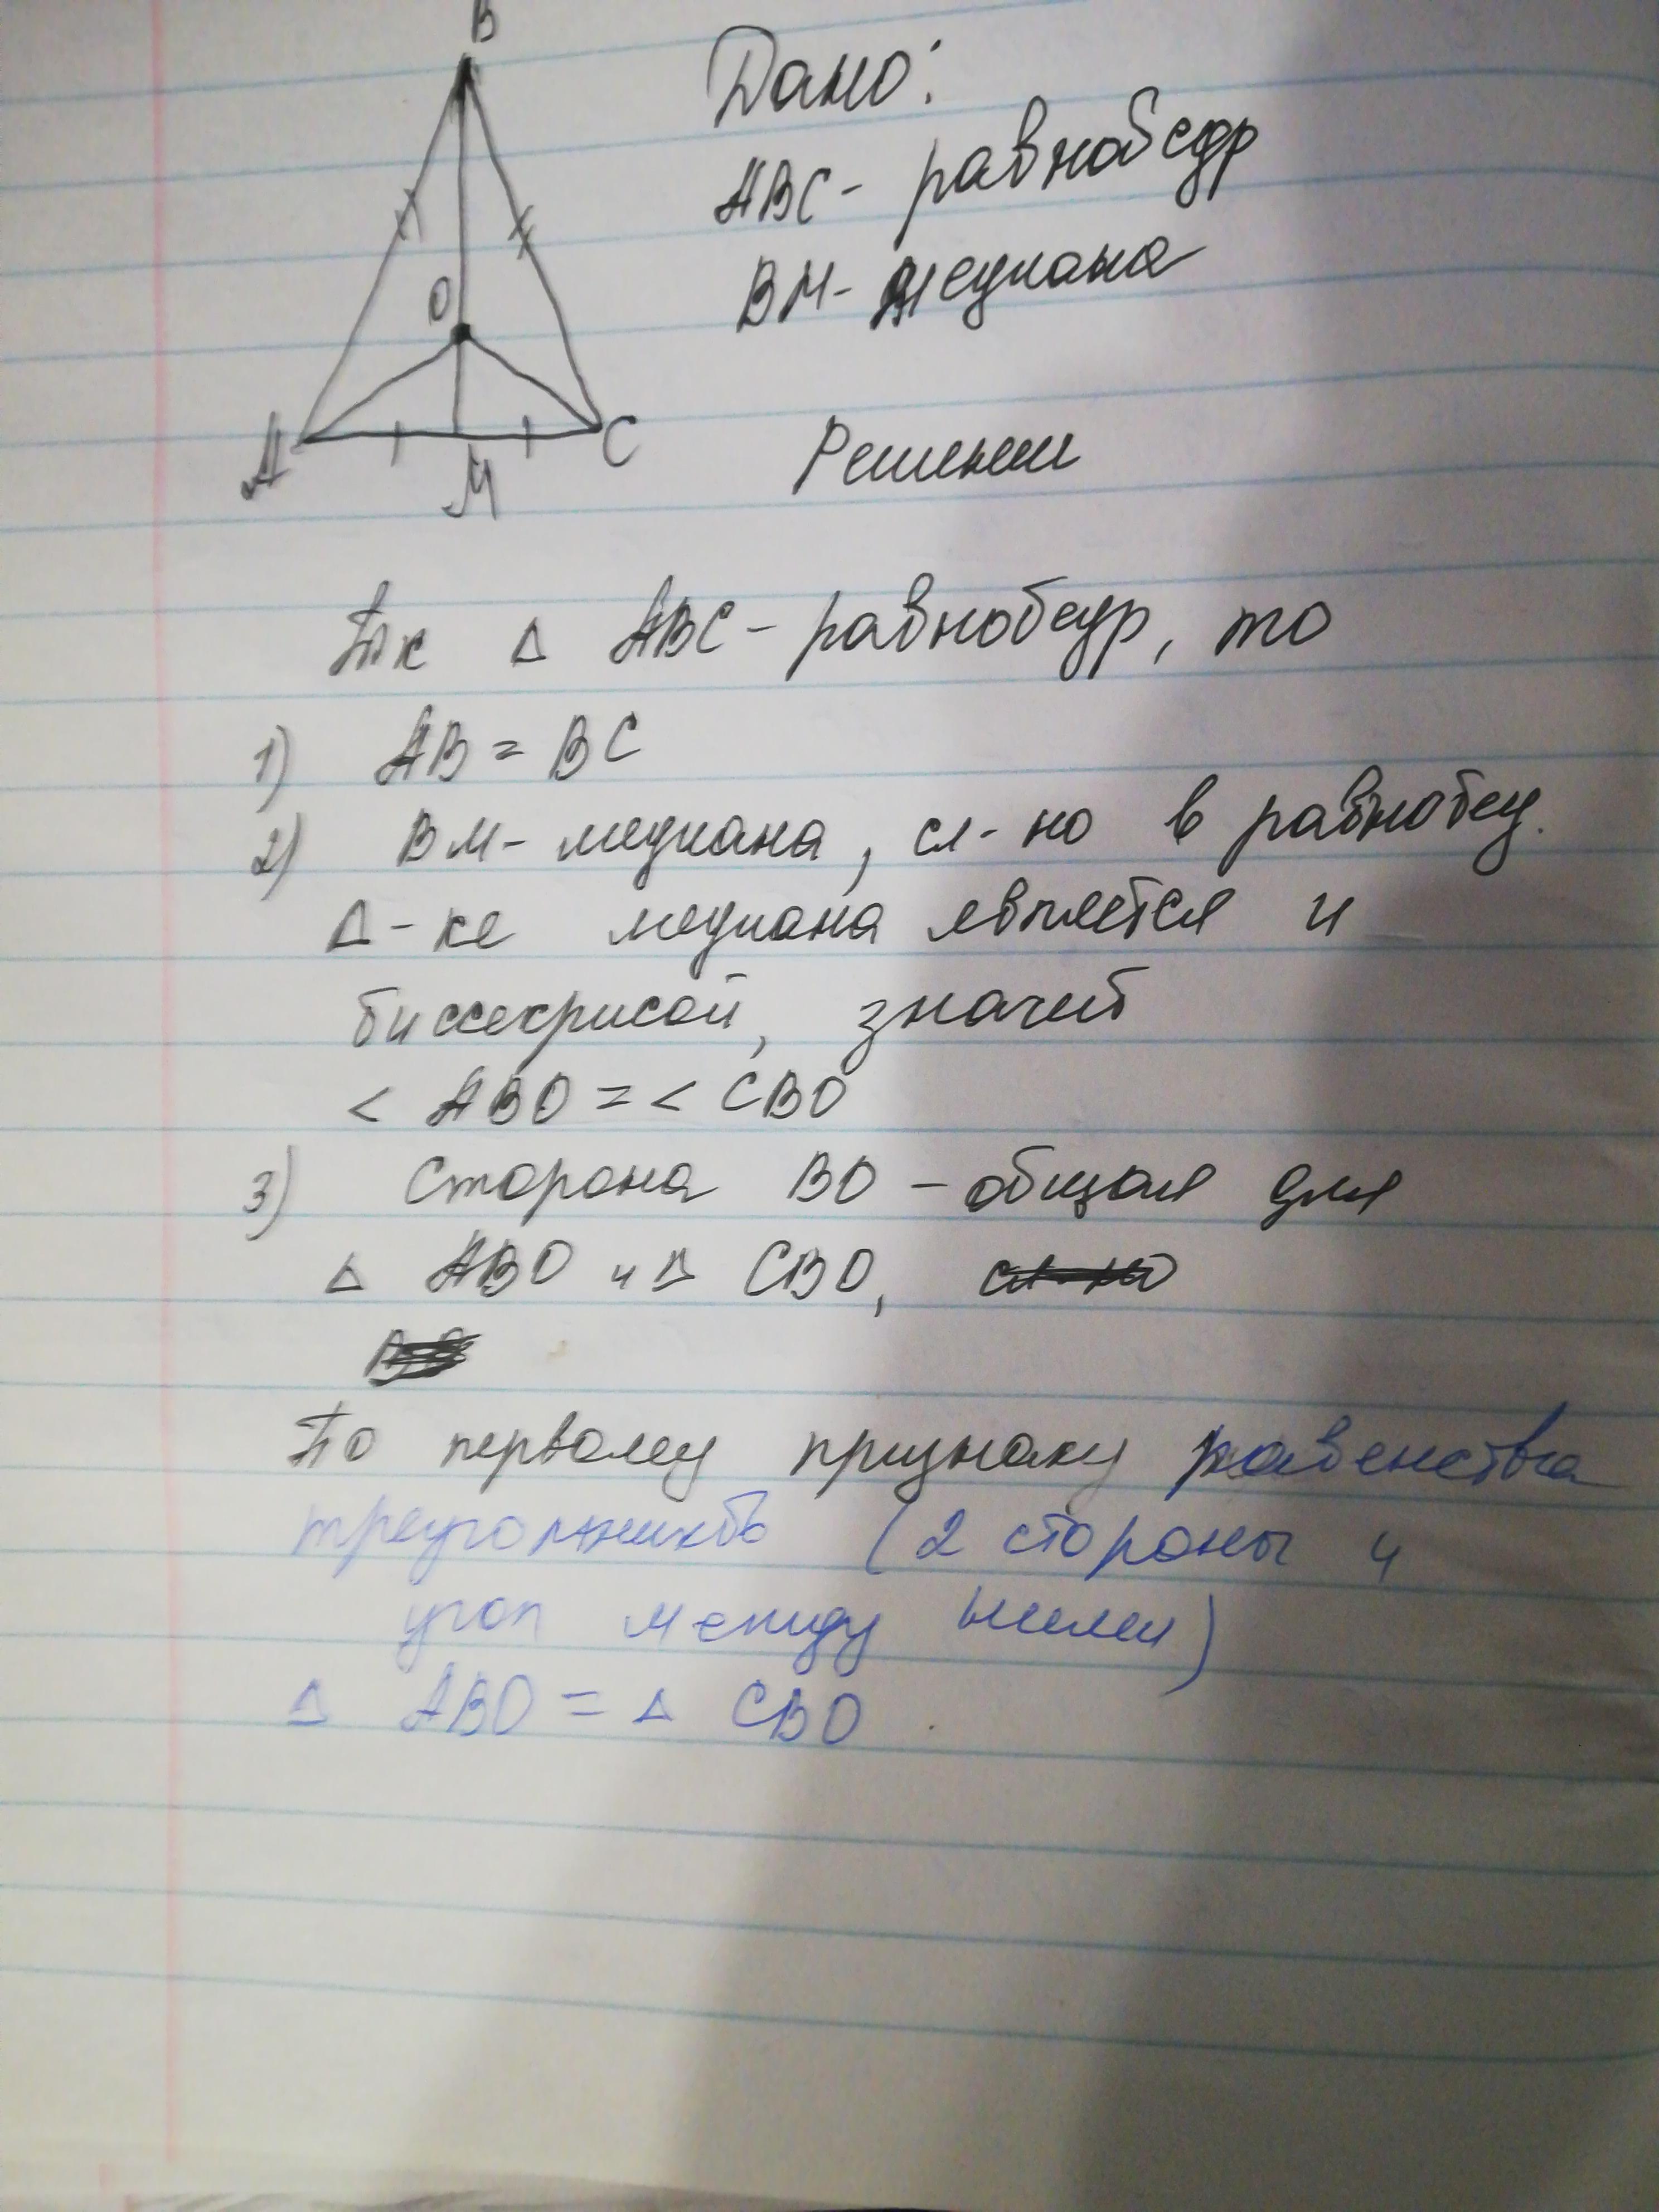 B
Дано:
ABC - равнобедр
BM - медиана
O
A
M
C
Решение
Тк Δ ABC - равнобедр, то
1) AB = BC
2) BM - медиана, сл-но в равнобед.
Δ-ке медиана является и
биссекрисой, значит
< ABO = < CBO
3) Сторона BO - общая для
Δ ABO и Δ CBO,
По первому признаку равенства
треугольников (2 стороны и
угол между ними)
Δ ABO = Δ CBO.